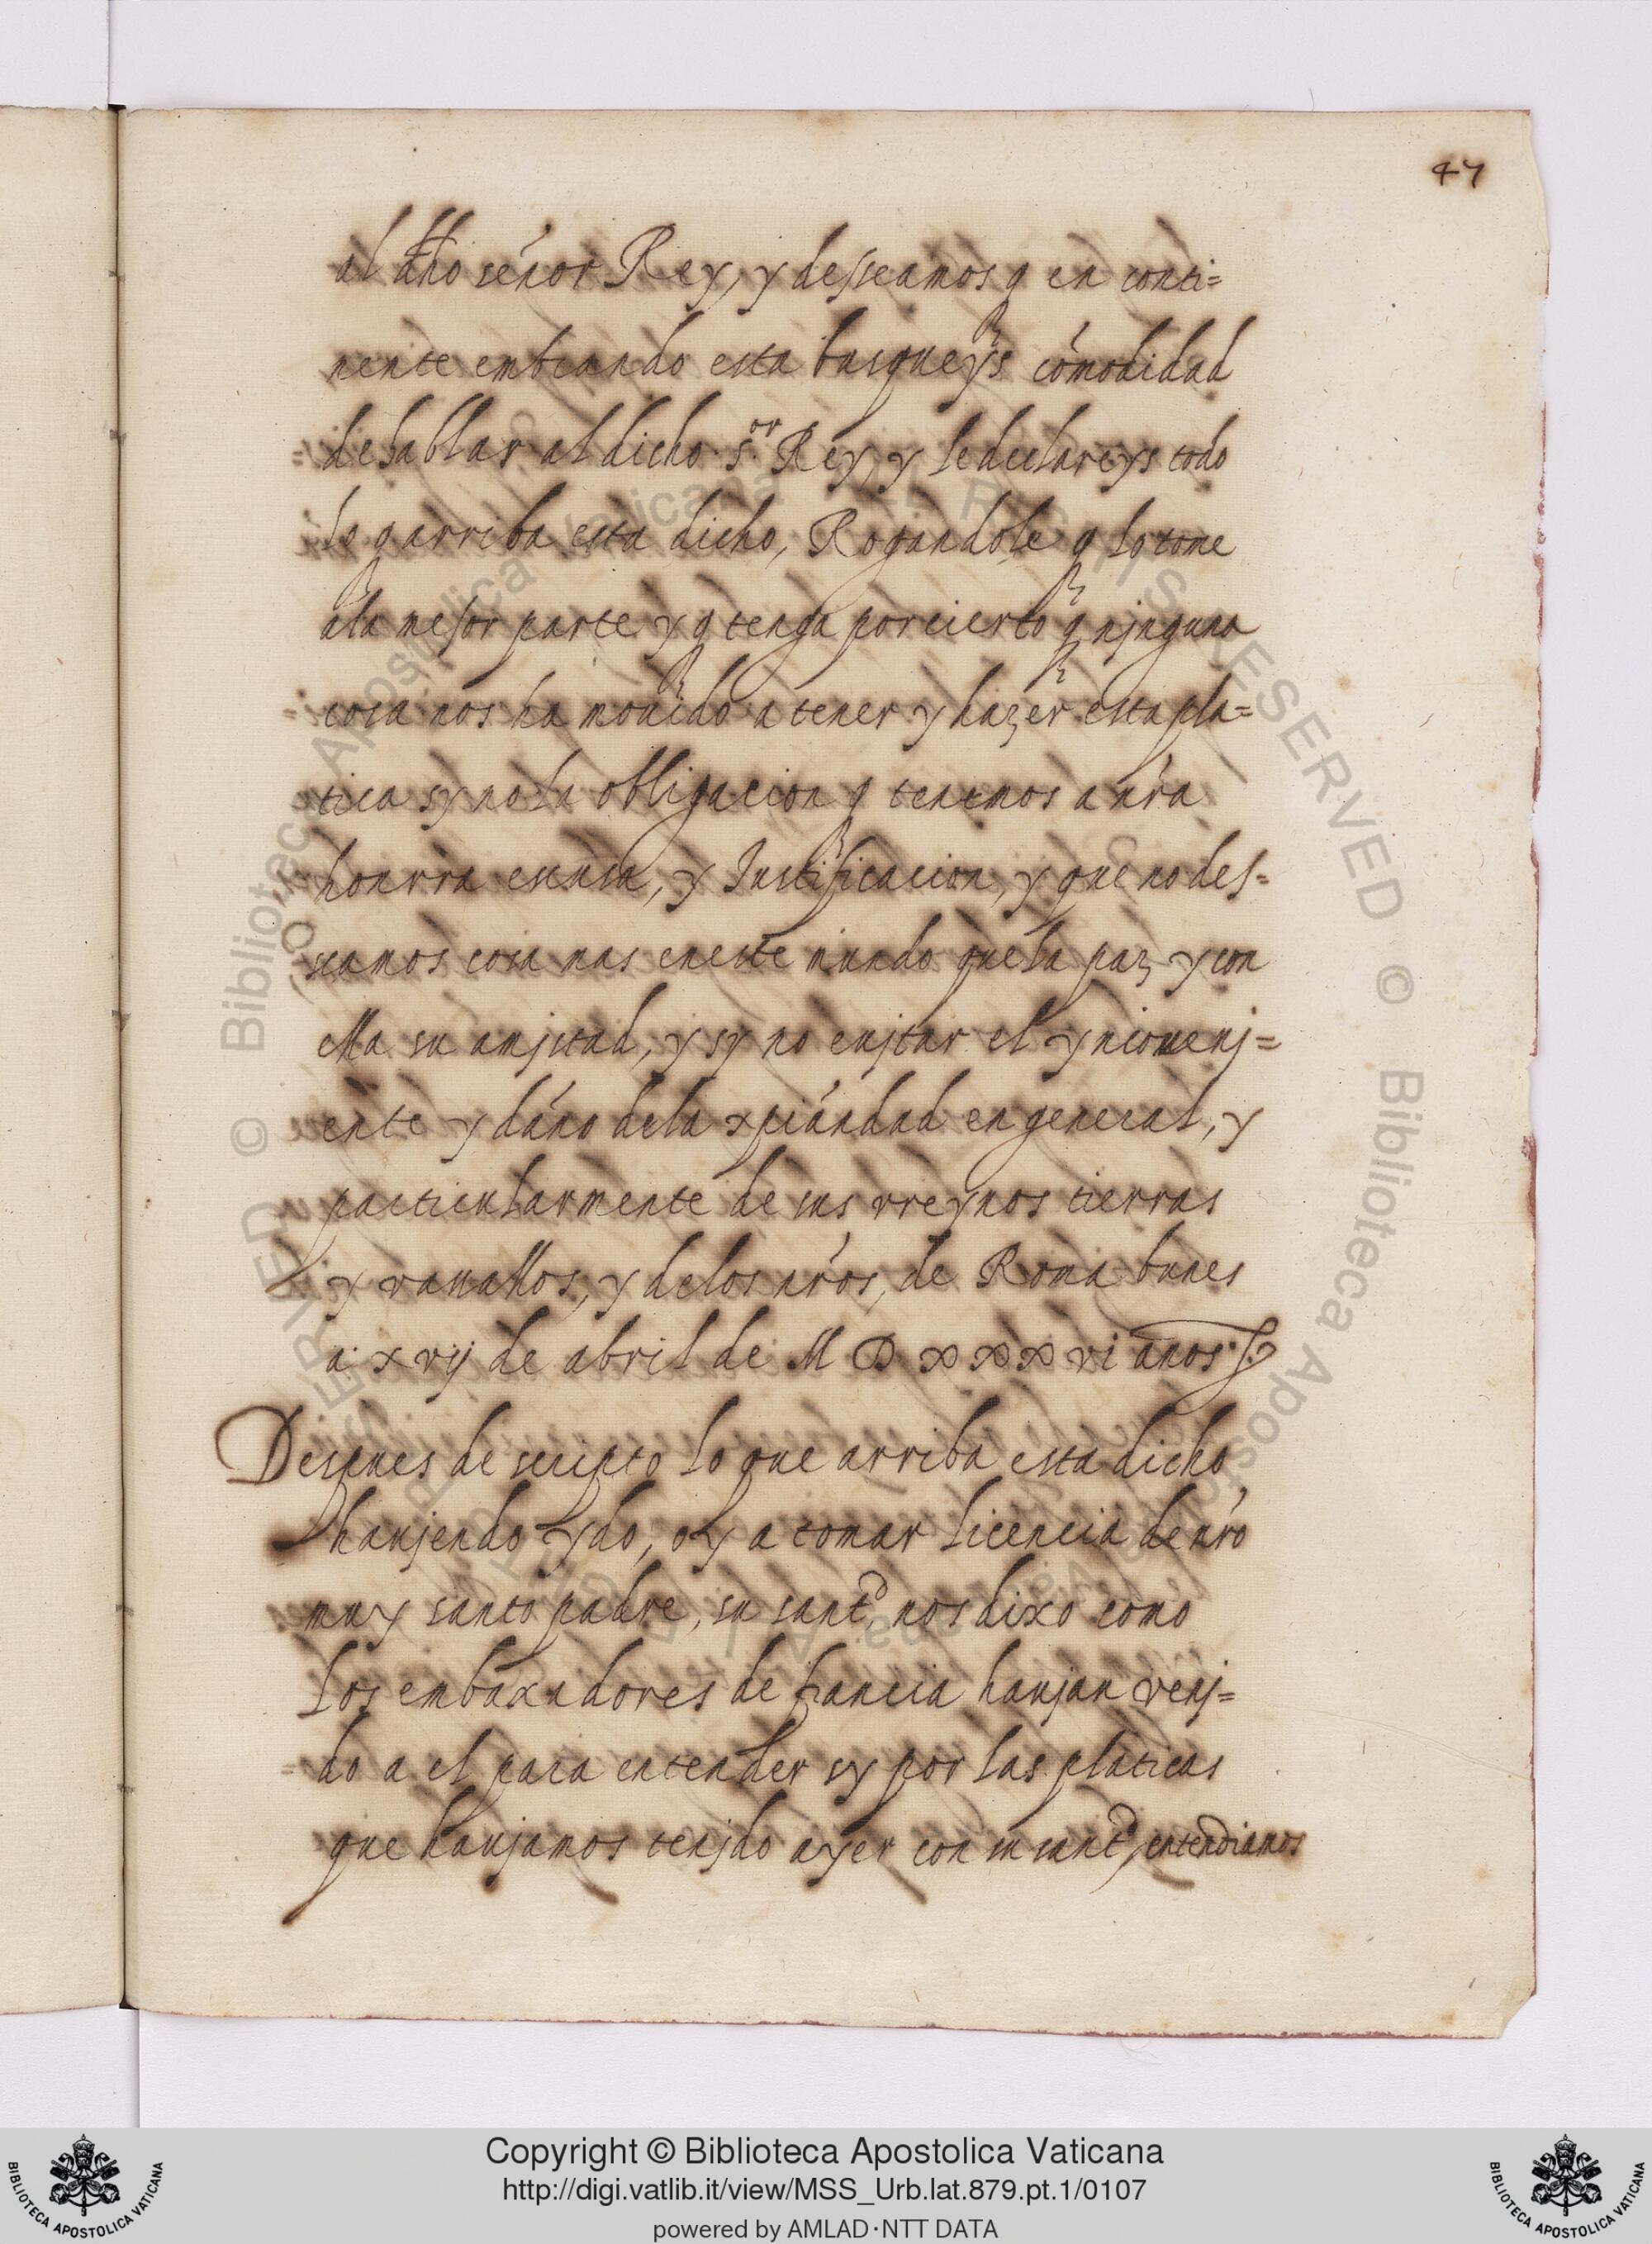 47
al dho señor Rey, y desseamos q en conti=
nente embiando esta busqueys cómodidad
de hablar al dicho s.or Rey, y le declareys todo
lo q arriba esta dicho, Rogandole q lo tome
ala mejor parte y q tenga por cierto q njnguna
cosa nos ha mouido a tener y hazer esta pla=
tica sy no la obligacion q tenemos a nr̃a
honrra escusa, y Justificacion, y que no des=
seamos cosa mas en este mundo que la paz y con
ella su amjstad, y sy no eujtar el ynconuenj=
ente y dáño dela xpiándad en general, y
particularmente de sus rreynos tierras
y vasallos, y delos nr̃os, de Roma lunes
a xvij de abril de M D xxx vi años
Despues de scripto lo que arriba esta dicho
haujendo ydo, oy a tomar licencia de nr̃o
muy santo padre, su santd. nos dixo como
los embaxadores de francia haujan venj=
do a el para entender sy por las platicas
que haujamos tenjdo ayer con su santd, entendiamos
Copyright © Biblioteca Apostolica Vaticana
http://digi.vatlib.it/view/MSS_Urb.lat.879.pt.1/0107
powered by AMLAD·NTT DATA